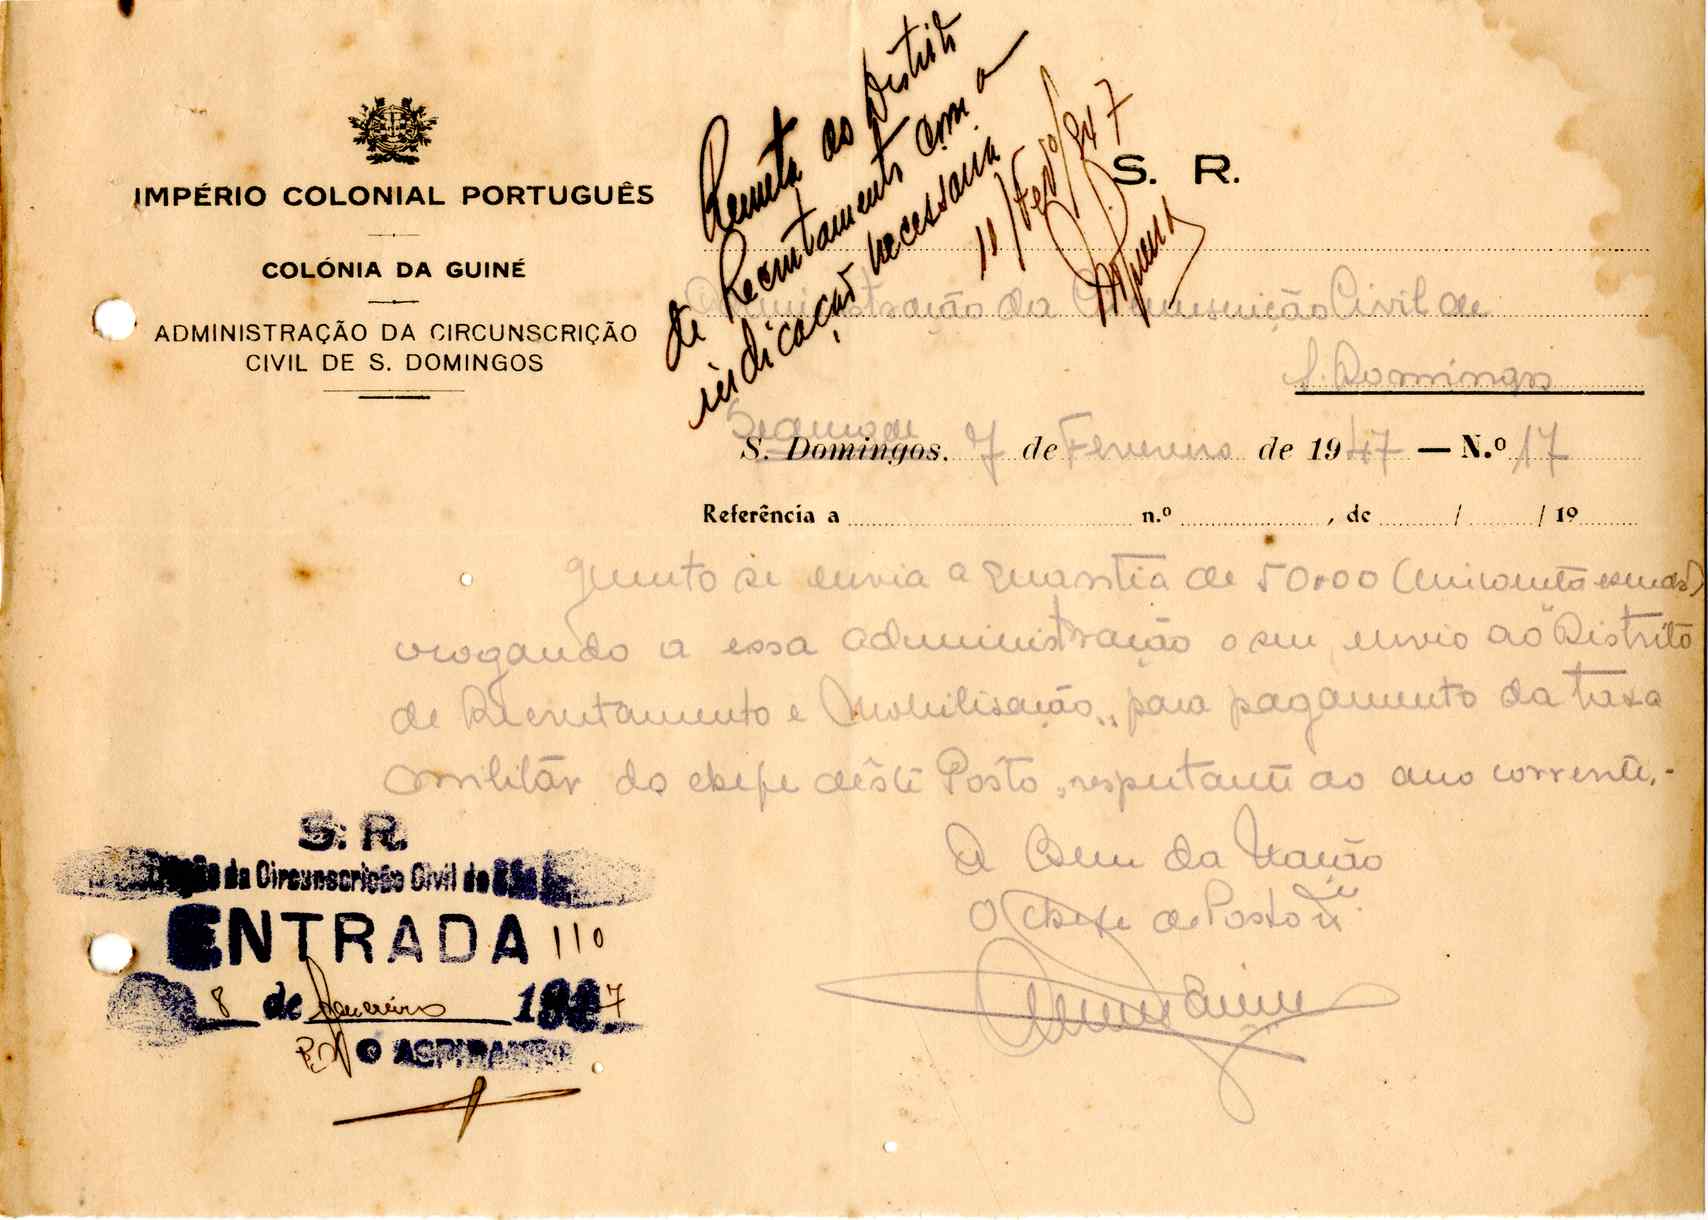 IMPÉRIO COLONIAL PORTUGUÊS
COLÓNIA DA GUINÉ
ADMINISTRAÇÃO DA CIRCUNSCRIÇÃO
CIVIL DE S. DOMINGOS
Remeta ao Distrito
de Recrutamento com a
indicação necessaria
11/Fevº/947
S. R.
Administração da Circunscrição Civil de
S. Domingos
S. Domingos, 7 de Fevereiro de 1947 — N.º 17
Referência a n.º , de / / 19
Junto se envia a quantia de 50.00 (cincoenta escudos)
rogando a essa administração o seu envio ao "Distrito
de Recrutamento e Mobilisação", para pagamento da taxa
militar do chefe dêste Posto, respeitante ao ano corrente.-
A Bem da Nação
O Chefe de Posto
S. R.
da Circunscrição Civil de São
ENTRADA 110
8 de fevereiro 1947
O ASPIRANTE